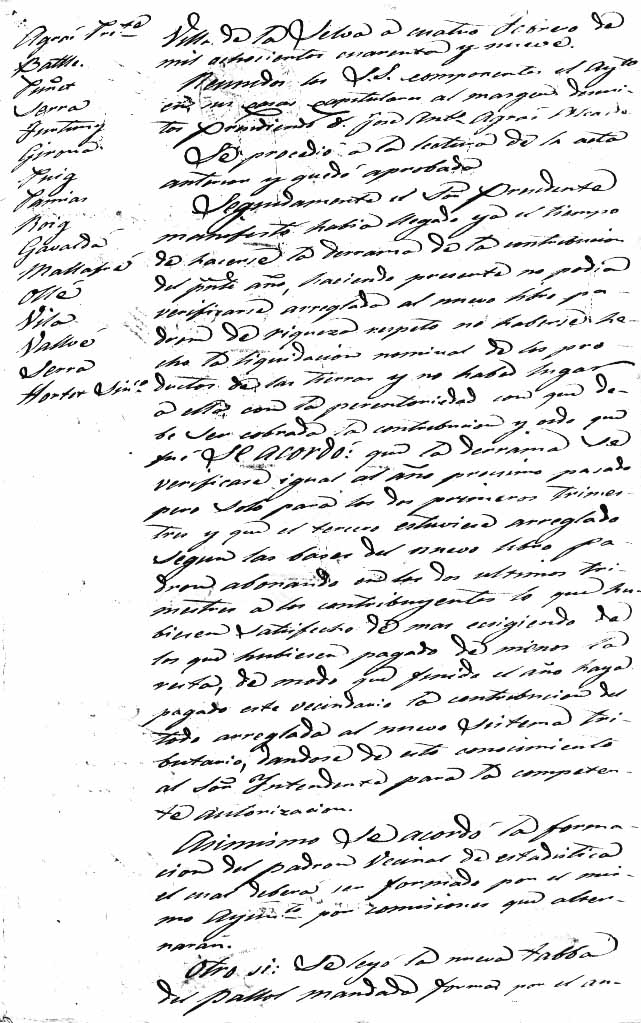 Agrás Pres.te
Batlle.
Puñet
Serra
Juntuny
Girona
Puig
Pamias
Roig
Gavaldá
Mallafré
Ollé
Vila
Vallvé
Serra
Hortet Sin.co
Villa de la Selva a cuatro Febrero de
mil ochocientos cuarenta y nueve.
Reunidos los S.S. componentes el Ayto
en sus casas capitulares al margen descri-
tos presidiendo D. José Ant.o Agrás Alcalde
Se procedió a la lectura de la acta
anterior y quedó aprobada
Seguidamente el Sor Presidente
manifestó habia llegado ya el tiempo
de hacerse la derrama de la contribucion
del pnte año, haciendo presente no podia
verificarse arreglada al nuevo libro pa-
dron de riqueza respeto no haberse he-
cho la liquidacion nominal de los pro
ductos de las tierras y no haber lugar
a ella con la perentoriedad con que de-
be ser cobrada la contribucion y oido que
fué Se acordó: que la derrama se
verificase igual al año procsimo pasado
pero solo para los dos primeros trimes-
tres y que el tercero estuviese arreglado
segun las bases del nuevo libro pa-
dron abonando en los dos ultimos tri-
mestres a los contribuyentes lo que hu-
biesen satisfecho de mas ecsigiendo de
los que hubiesen pagado de menos la
resta, de modo que fenido el año haya
pagado este vecindario la contribucion del
todo arreglada al nuevo sistema tri-
butario, dandose de esto conocimiento
al Sor Intendente para la competen-
te autorizacion.
Asimismo se acordó la forma-
cion del padron vecinal de estadistica
el cual deberá ser formado por el mis-
mo Ayun.to por comisiones que alter-
narán.
Otro si: Se leyó la nueva tabba
del pallol mandada formar por el an-